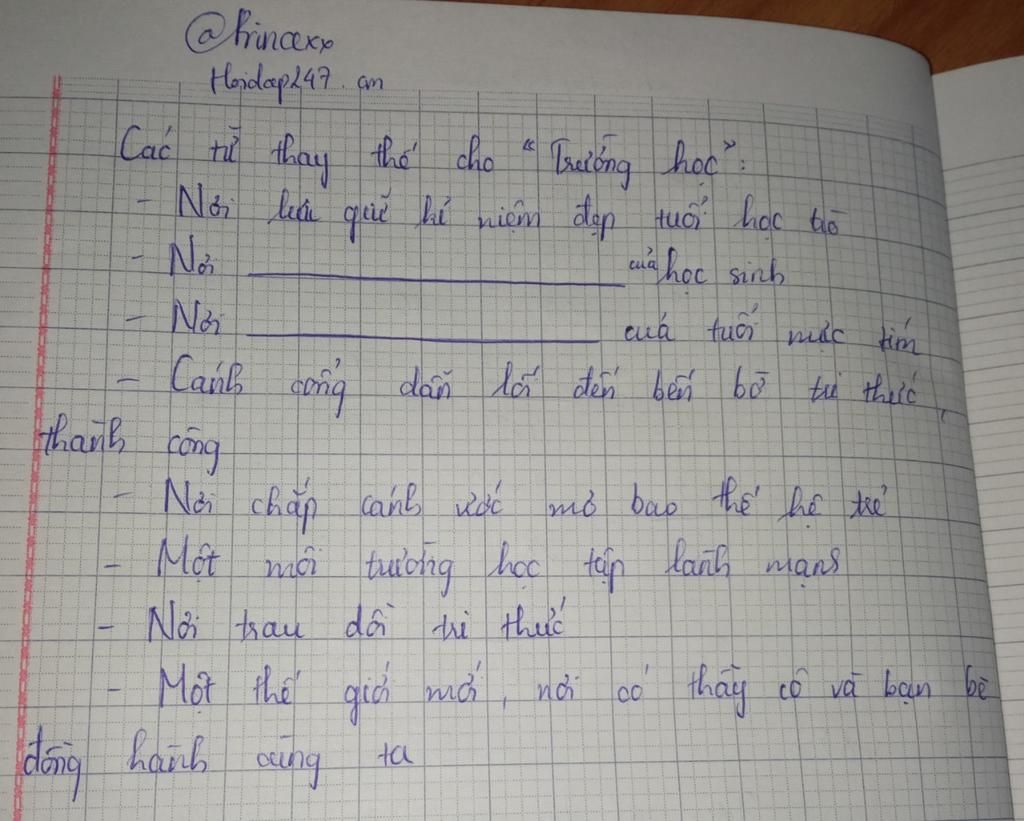 @Princexx
Hoidap247.com
Các từ thay thế cho "Trường học":
- Nơi lưu giữ kỉ niệm đẹp tuổi học trò
- Nơi ____________ của học sinh
- Nơi ____________ của tuổi mực tím
- Cánh cổng dẫn lối đến bến bờ tri thức,
thành công
- Nơi chắp cánh ước mơ bao thế hệ trẻ
- Một môi trường học tập lành mạnh
- Nơi trau dồi tri thức
- Một thế giới mới, nơi có thầy cô và bạn bè
đồng hành cùng ta